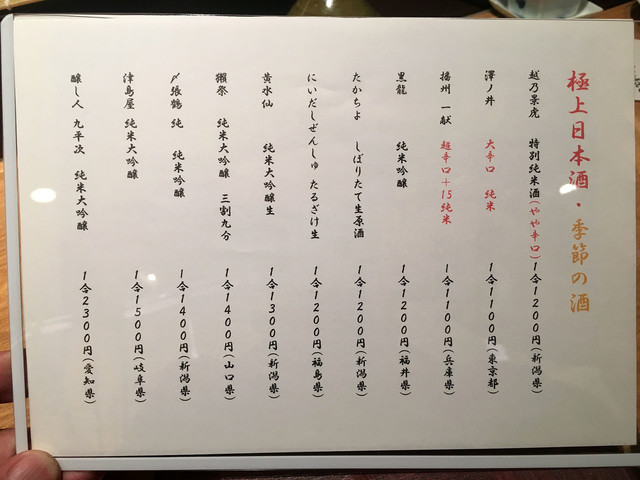 極上日本酒・季節の酒
越乃景虎 特別純米酒(やや辛口) 1合1200円(新潟県)
澤ノ井 大辛口 純米 1合1100円(東京都)
播州一献 超辛口+15純米 1合1100円(兵庫県)
黒龍 純米吟醸 1合1200円(福井県)
たかちよ しぼりたて生原酒 1合1200円(新潟県)
にいだしぜんしゅ たるざけ生 1合1200円(福島県)
黄水仙 純米大吟醸生 1合1300円(新潟県)
獺祭 純米大吟醸 三割九分 1合1400円(山口県)
〆張鶴 純 純米吟醸 1合1400円(新潟県)
津島屋 純米大吟醸 1合1500円(岐阜県)
醸し人 九平次 純米大吟醸 1合2300円(愛知県)